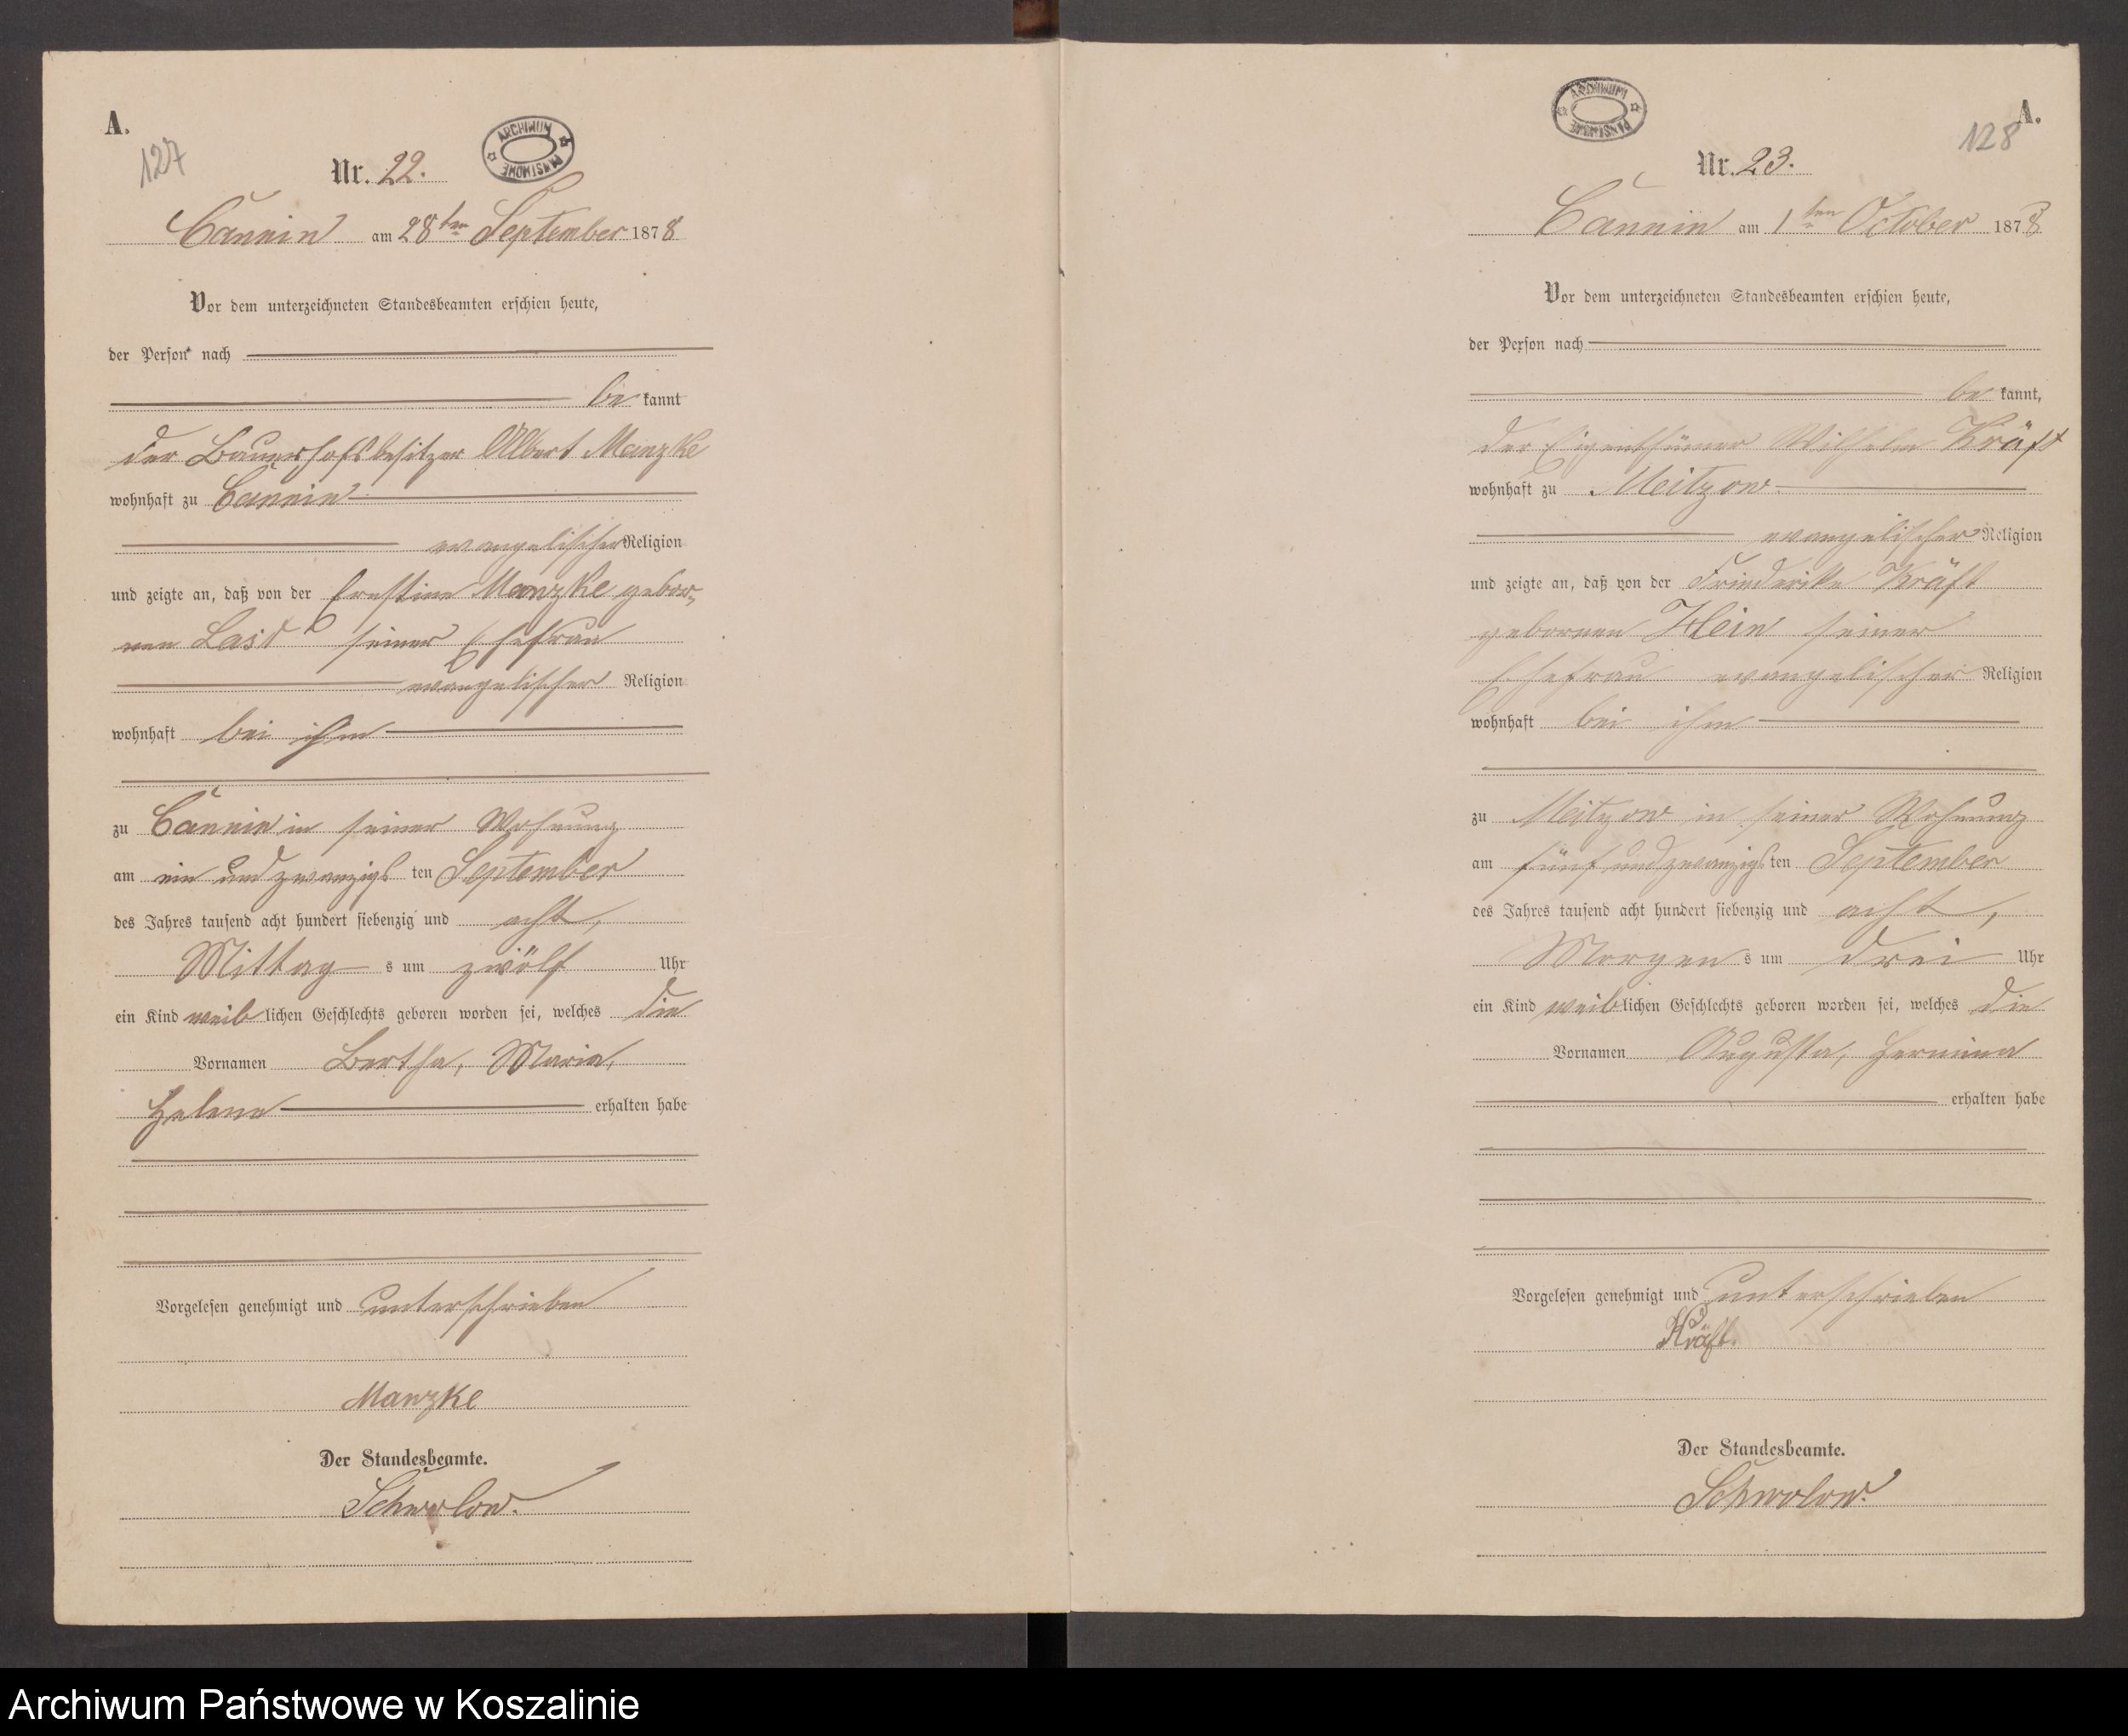 A.
127
ARCHIWUM PAŃSTWOWE
Nr. 22.
Cannin am 28ten September 1878
Vor dem unterzeichneten Standesbeamten erschien heute,
der Person nach
be kannt
der Bauerhofsbesitzer Albert Manzke
wohnhaft zu Cannin
evangelischer Religion
und zeigte an, daß von der Ernstine Manzke gebor-
nen seiner Ehefrau
evangelischer Religion
wohnhaft bei ihm
zu Cannin in seiner Wohnung
am ein und zwanzigs ten September
des Jahres tausend acht hundert siebenzig und acht,
Mittag s um zwölf Uhr
ein Kind weib lichen Geschlechts geboren worden sei, welches die
Vornamen Bertha, Maria,
Helene erhalten habe
Vorgelesen genehmigt und unterschrieben
Manzke
Der Standesbeamte.
Schwolow.
A.
128
ARCHIWUM PAŃSTWOWE
Nr. 23.
Cannin am 1ten October 1878
Vor dem unterzeichneten Standesbeamten erschien heute,
der Person nach
be kannt,
der Eigenthümer Wilhelm Kräft
wohnhaft zu Meitzow
evangelischer Religion
und zeigte an, daß von der Friederike Kräft
gebornen Hein seiner
Ehefrau evangelischer Religion
wohnhaft bei ihm
zu Meitzow in seiner Wohnung
am fünf und zwanzigs ten September
des Jahres tausend acht hundert siebenzig und acht,
Morgen s um drei Uhr
ein Kind weib lichen Geschlechts geboren worden sei, welches die
Vornamen Augusta, Hermina
erhalten habe
Vorgelesen genehmigt und unterschrieben
Kräft.
Der Standesbeamte.
Schwolow.
Archiwum Państwowe w Koszalinie